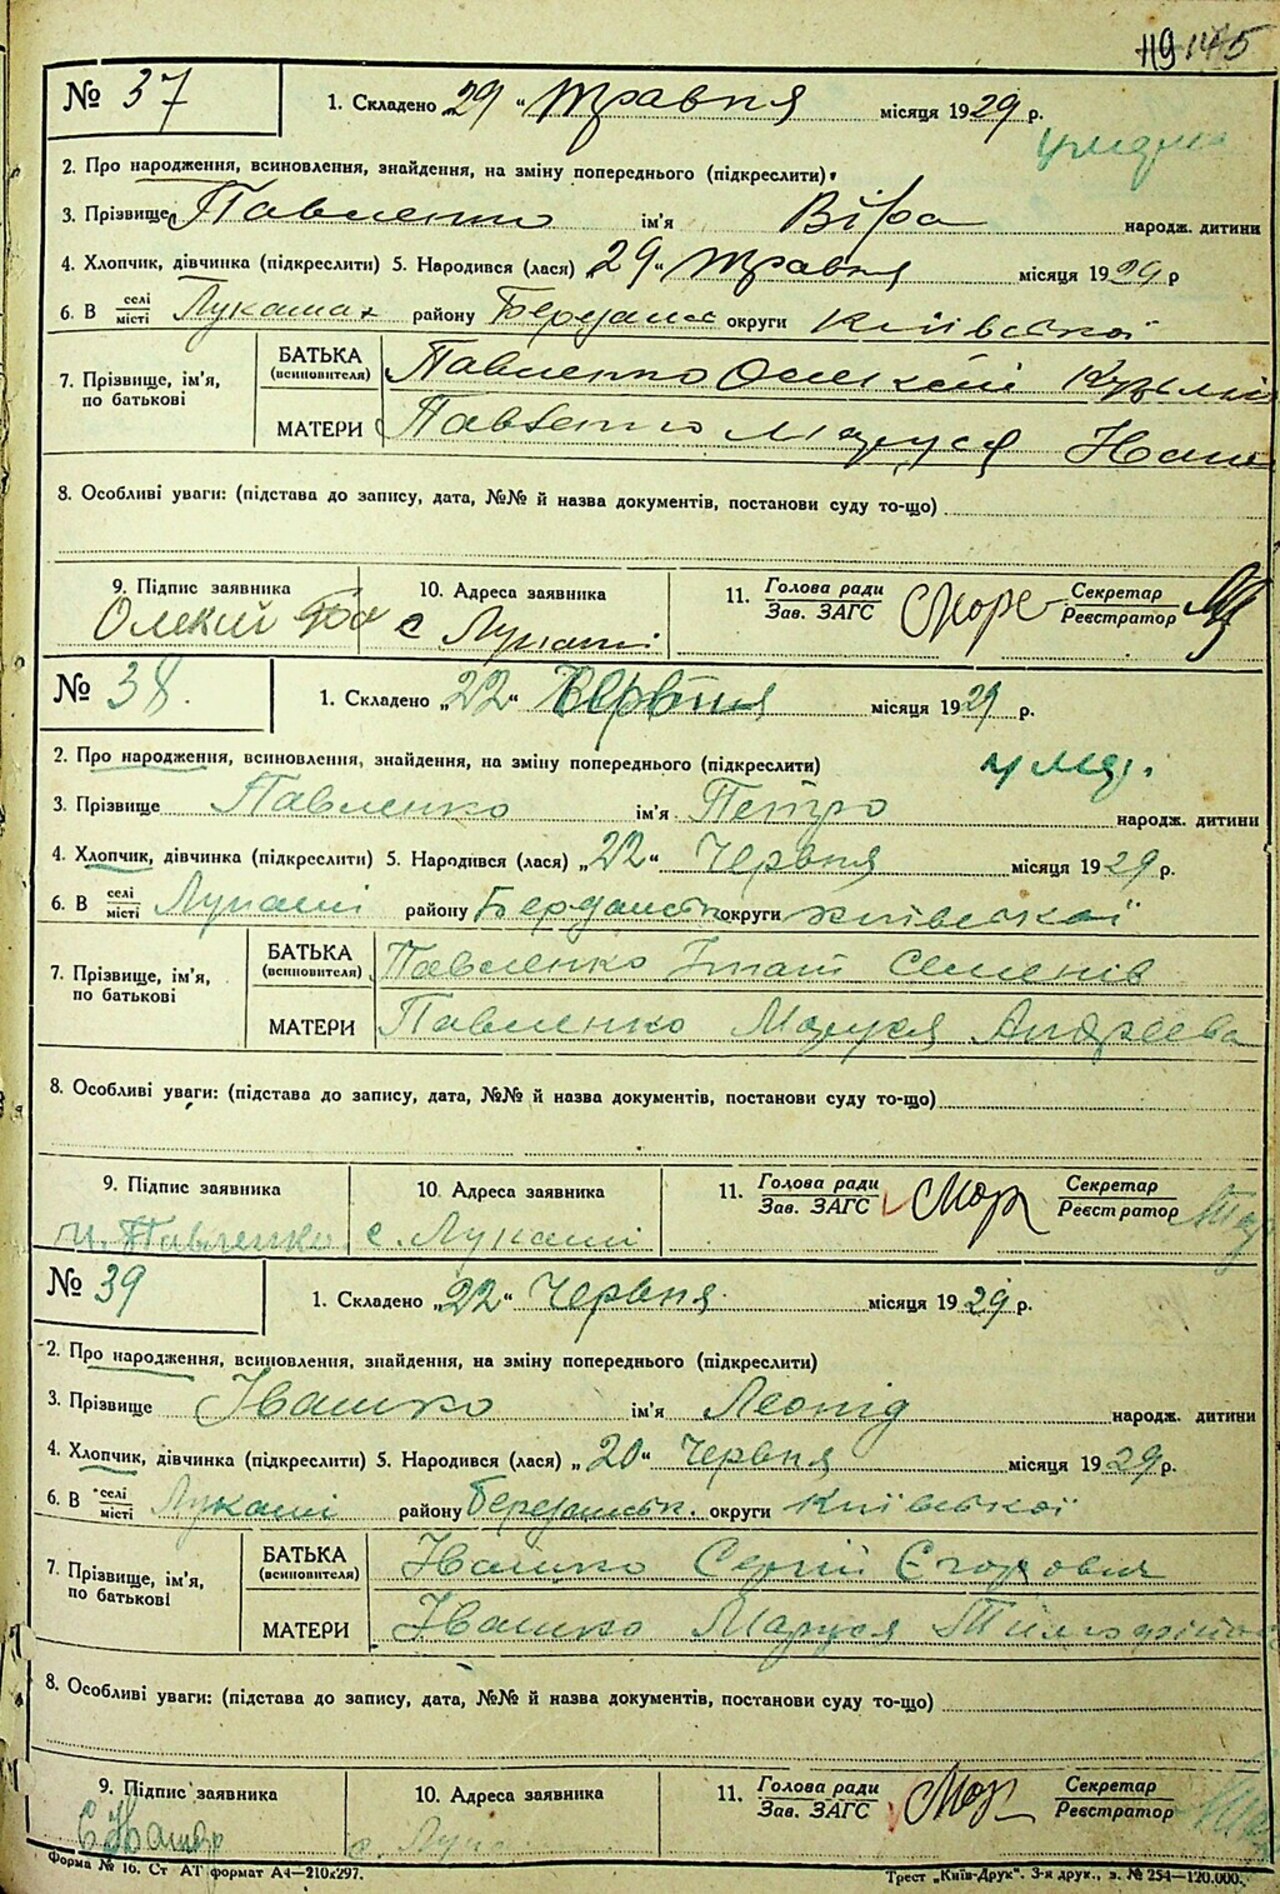 119 145
№ 37 1. Складено „29“ травня місяця 1929 р.
2. Про народження, всиновлення, знайдення, на зміну попереднього (підкреслити)
3. Прізвище Павленко ім'я Віра народж. дитини
4. Хлопчик, дівчинка (підкреслити) 5. Народився (лася) „29“ травня місяця 1929 р
6. В селі місті Лукашах району округи Київської
7. Прізвище, ім'я, по батькові БАТЬКА (всиновителя) Павленко Олексій
МАТЕРИ Павленко Маруся
8. Особливі уваги: (підстава до запису, дата, №№ й назва документів, постанови суду то-що)
9. Підпис заявника 10. Адреса заявника 11. Голова ради Зав. ЗАГС Секретар Реєстратор
с Лукаші
№ 38. 1. Складено „22“ Червня місяця 1929 р.
2. Про народження, всиновлення, знайдення, на зміну попереднього (підкреслити)
умер.
3. Прізвище Павленко ім'я Петро народж. дитини
4. Хлопчик, дівчинка (підкреслити) 5. Народився (лася) „22“ Червня місяця 1929 р.
6. В селі місті Лукаші району округи Київської
7. Прізвище, ім'я, по батькові БАТЬКА (всиновителя) Павленко Ігнат Семенів
МАТЕРИ Павленко Маруся Андрєева
8. Особливі уваги: (підстава до запису, дата, №№ й назва документів, постанови суду то-що)
9. Підпис заявника 10. Адреса заявника 11. Голова ради Зав. ЗАГС Секретар Реєстратор
И. Павленко с. Лукаші
№ 39 1. Складено „22“ Червня місяця 1929 р.
2. Про народження, всиновлення, знайдення, на зміну попереднього (підкреслити)
3. Прізвище Івашко ім'я Леонід народж. дитини
4. Хлопчик, дівчинка (підкреслити) 5. Народився (лася) „20“ Червня місяця 1929 р.
6. В селі місті Лукаші району округи Київської
7. Прізвище, ім'я, по батькові БАТЬКА (всиновителя) Івашко Сергій Єгорович
МАТЕРИ Івашко Маруся
8. Особливі уваги: (підстава до запису, дата, №№ й назва документів, постанови суду то-що)
9. Підпис заявника 10. Адреса заявника 11. Голова ради Зав. ЗАГС Секретар Реєстратор
Форма № 16. Ст АТ формат А4—210х297. Трест „Київ-Друк“. 3-я друк., з. № 254—120.000.